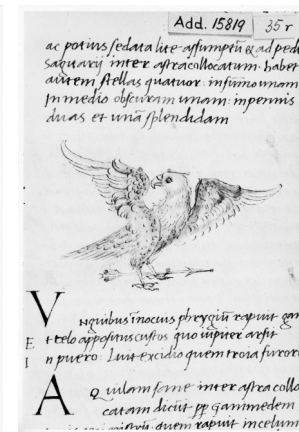 Add. 15819 35 r
ac potius sedata lite assumptũ e ad pedi
saquarii inter astra collocatum. habet
autem stellas quatuor. in summo unam
In medio obscuram unam: in pennis
duas et unã splendidam
V nguibus innocuis phrygiũ rapuit gan
E t telo appositus custos quo iuppiter arsit
I n puero. Luit excidio quem troia furore
A Q uilam sane inter astra collo
catam dicũt pp ganimedem
quem rapuit in celum